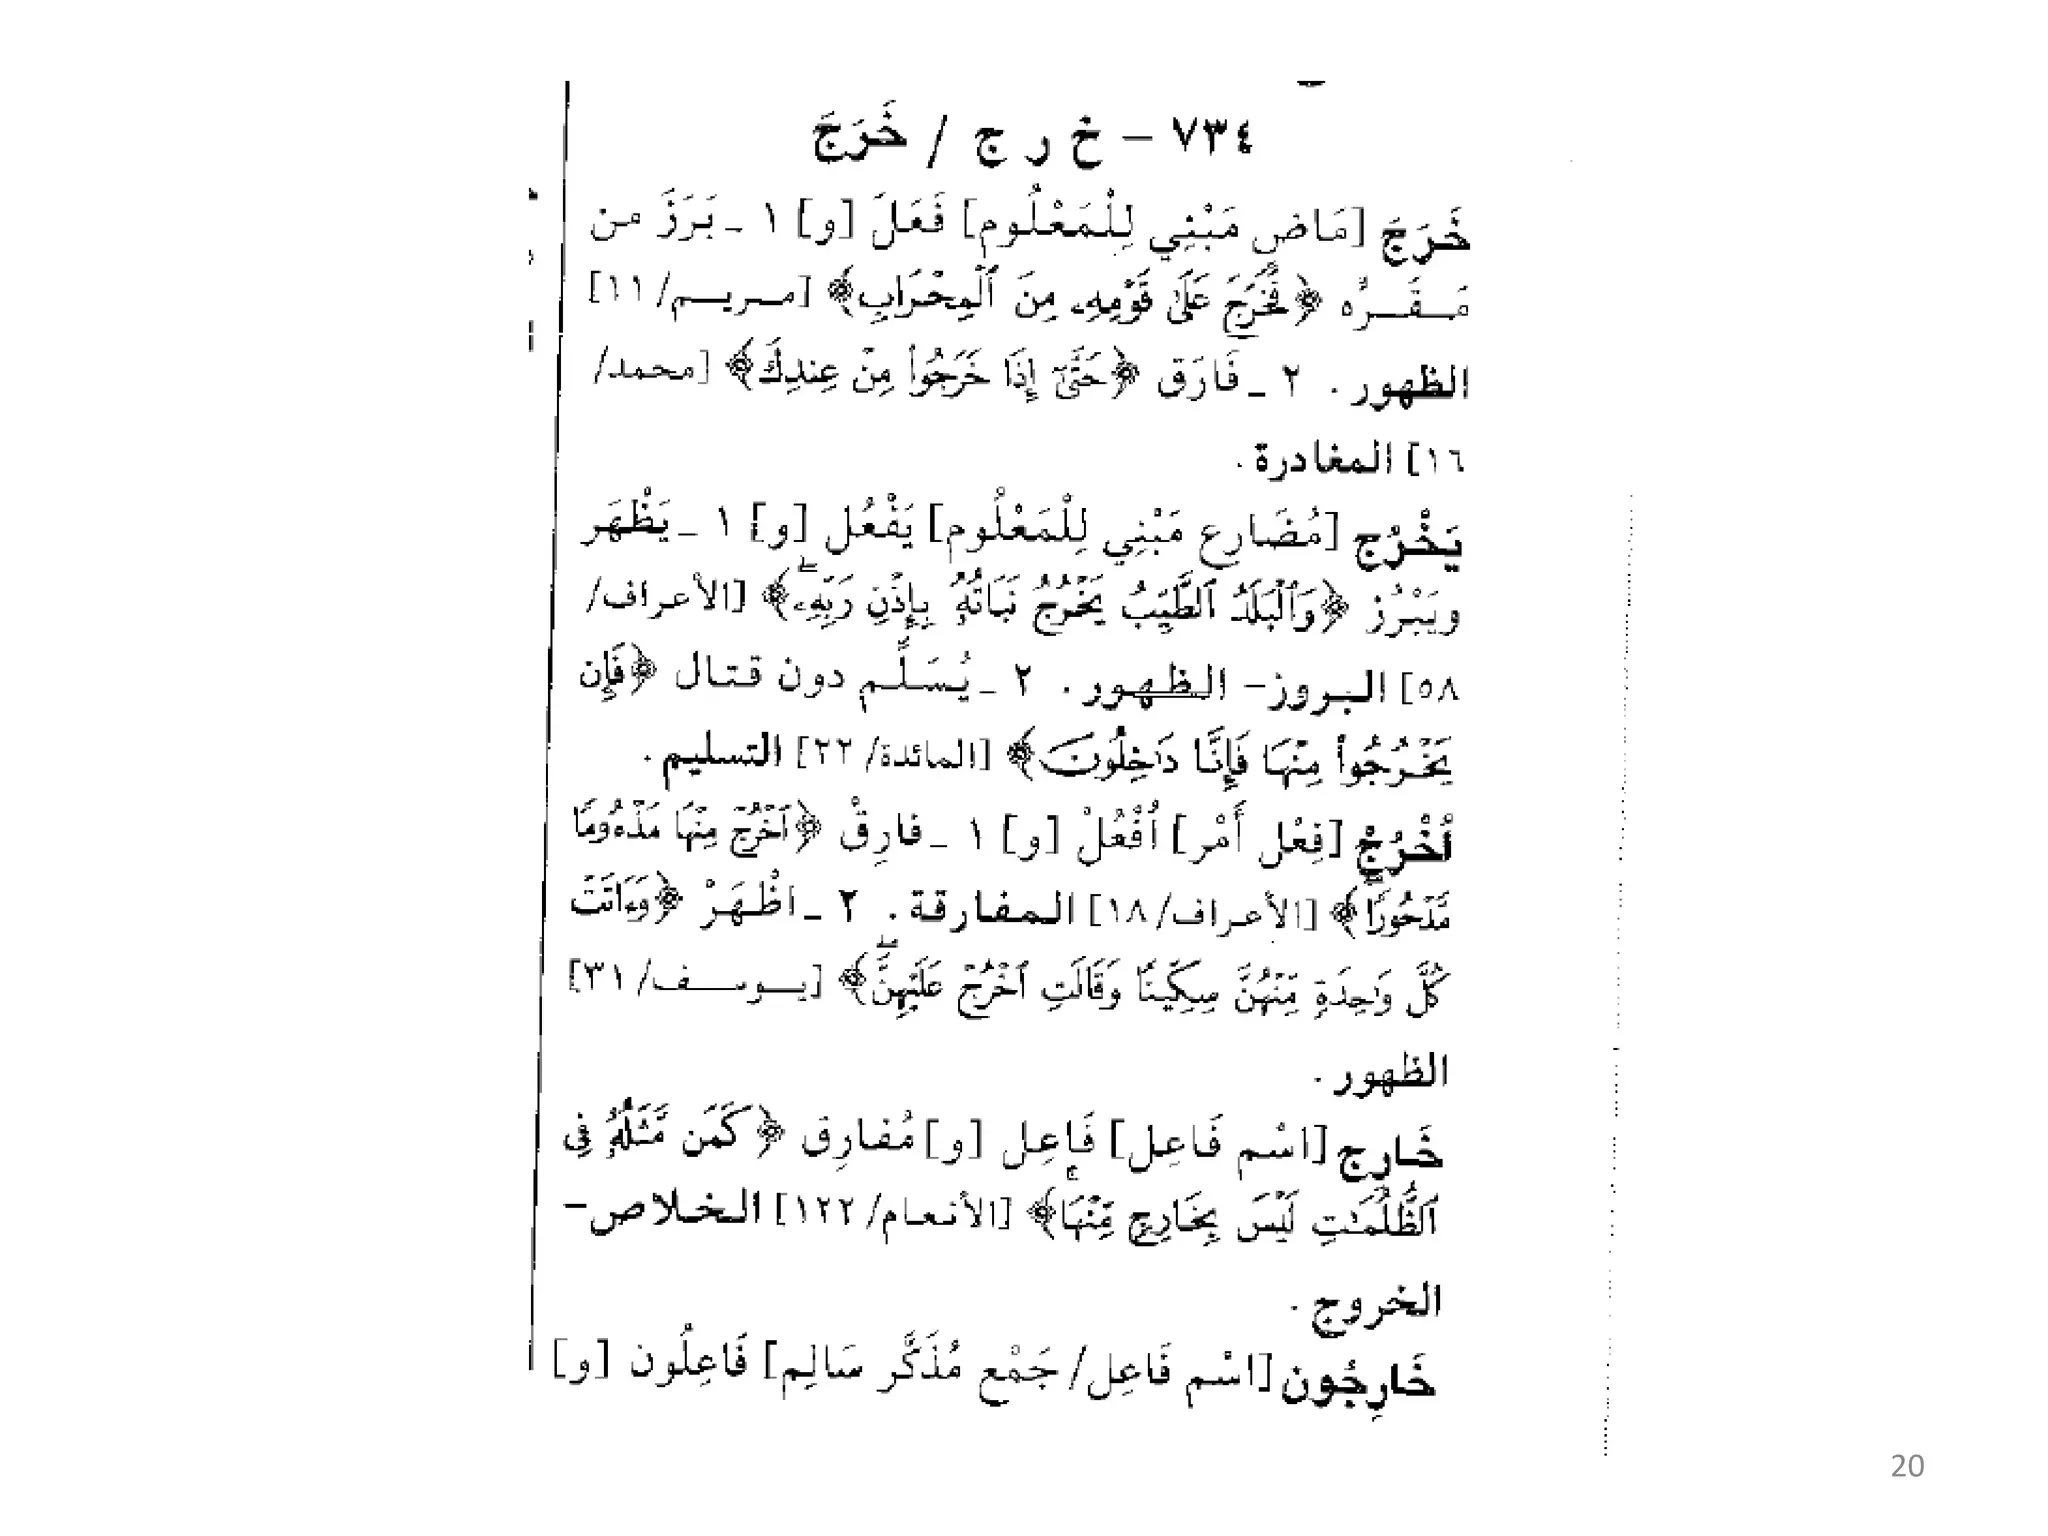 ٧٣٤ – خ ر ج / خَرَجَ
خَرَجَ [مَاضٍ مَبْنِي لِلْمَعْلُوم] فَعَلَ [و] ١ ـ بَرَزَ من
مَـقَـــرُّه ﴿فَخَرَجَ عَلَىٰ قَوْمِهِۦ مِنَ ٱلْمِحْرَابِ﴾ [مـريــم/ ١١]
الظهور. ٢ ـ فَارَق ﴿حَتَّىٰٓ إِذَا خَرَجُوا۟ مِنْ عِندِكَ﴾ [محمد/
١٦] المغادرة.
يَخْرُج [مُضَارِع مَبْنِي لِلْمَعْلُوم] يَفْعُل [و] ١ ـ يَظْهَر
ويَبْرُز ﴿وَٱلْبَلَدُ ٱلطَّيِّبُ يَخْرُجُ نَبَاتُهُۥ بِإِذْنِ رَبِّهِۦ ۖ﴾ [الأعراف/
٥٨] البروز– الظهور. ٢ ـ يُسَلَّم دون قتال ﴿فَإِن
يَخْرُجُوا۟ مِنْهَا فَإِنَّا دَٰخِلُونَ﴾ [المائدة/ ٢٢] التسليم.
اُخْرُجْ [فِعْل أَمْر] اُفْعُلْ [و] ١ ـ فارِقْ ﴿ٱخْرُجْ مِنْهَا مَذْءُومًا
مَّدْحُورًا﴾ [الأعراف/ ١٨] المفارقة. ٢ ـ اظْهَرْ ﴿وَءَاتَتْ
كُلَّ وَٰحِدَةٍ مِّنْهُنَّ سِكِّينًا وَقَالَتِ ٱخْرُجْ عَلَيْهِنَّ ۖ﴾ [يـوسـف/ ٣١]
الظهور.
خَارِج [اسْم فَاعِل] فَاعِل [و] مُفارِق ﴿كَمَن مَّثَلُهُۥ فِى
ٱلظُّلُمَـٰتِ لَيْسَ بِخَارِجٍ مِّنْهَا ۚ﴾ [الأنعام/ ١٢٢] الخلاص–
الخروج.
خَارِجُون [اسْم فَاعِل/ جَمْع مُذَكَّر سَالِم] فَاعِلُون [و]
20